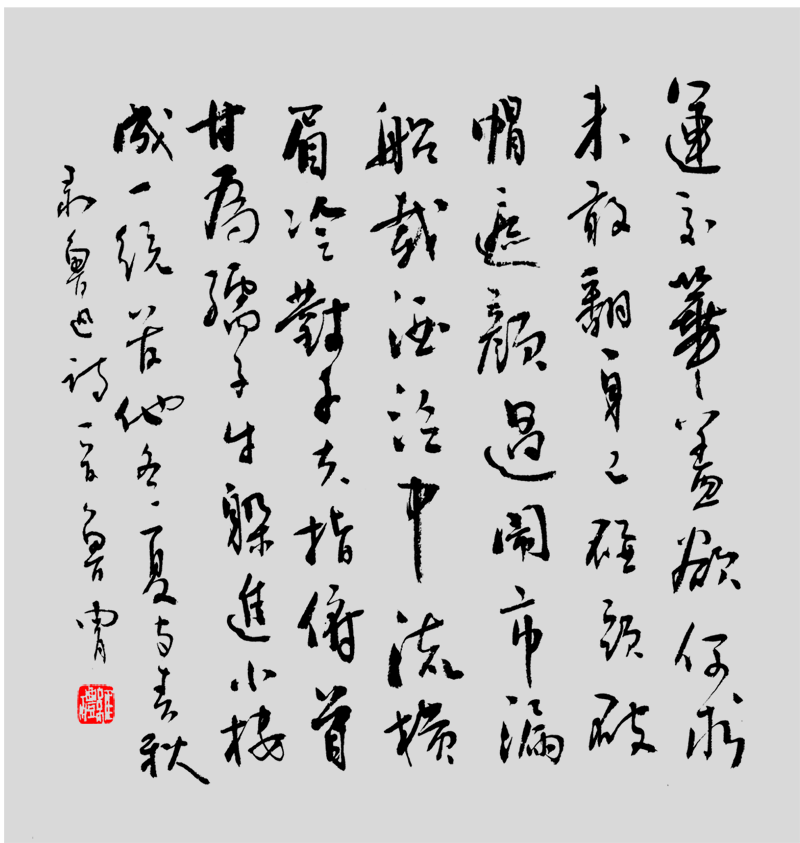 運交華蓋欲何求
未敢翻身已碰頭破
帽遮顏過鬧市漏
船載酒泛中流橫
眉冷對千夫指俯首
甘為孺子牛躲進小樓
成一統管他冬夏与春秋
录魯迅詩一首魯